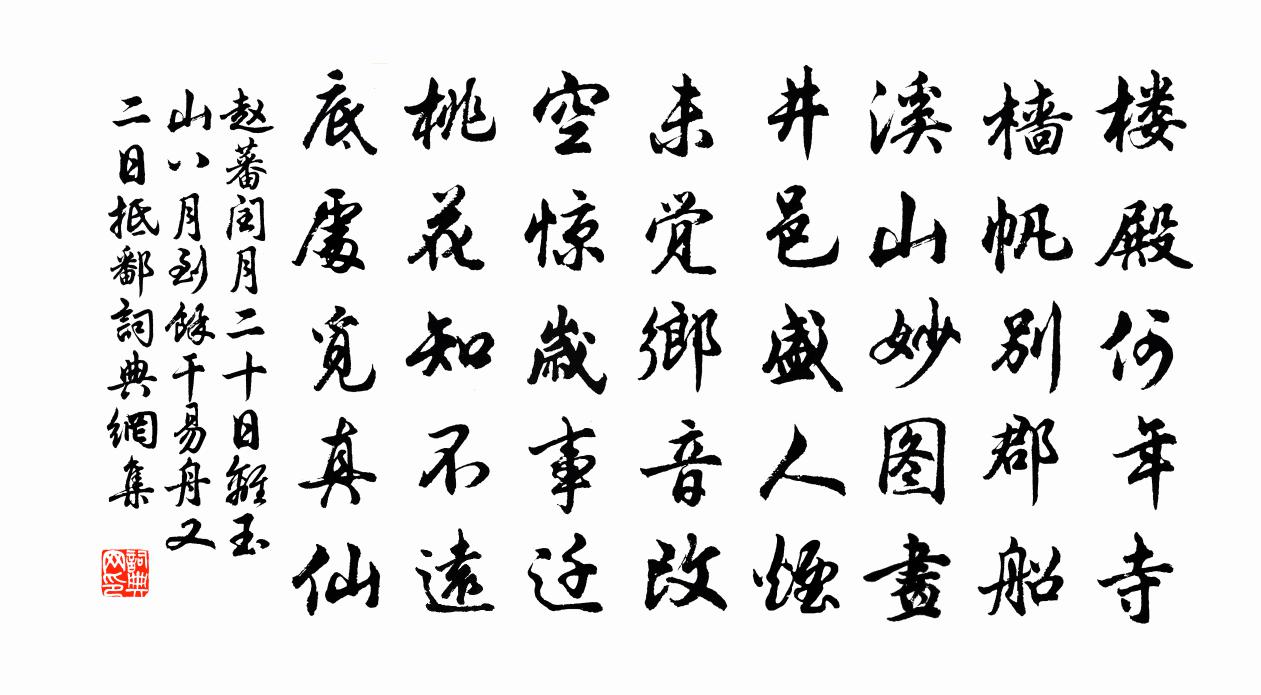 楼殿何年寺
樯帆别郡船
溪山妙图畫
井邑盛人煙
未觉鄉音改
空惊歲事迁
桃花知不遠
底處覓真仙
赵蕃闰月二十日離玉
山八月到餘干易舟又
二日抵鄱詞典網集
詞典
网印